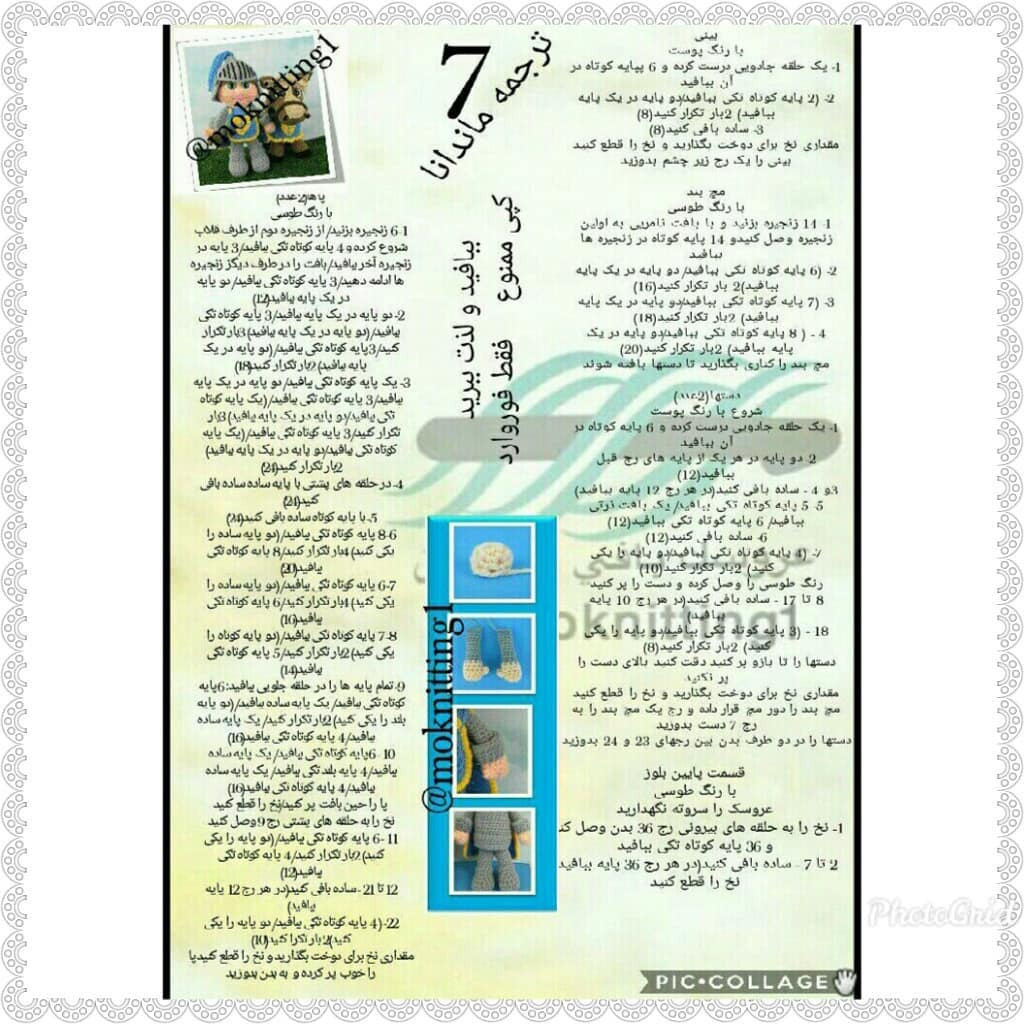 بینی
با رنگ پوست
1- یک حلقه جادویی درست کرده و 6 پپایه کوتاه در
آن ببافید
2- (2 پایه کوتاه تکی ببافید/دو پایه در یک پایه
ببافید) 2بار تکرار کنید(8)
3- ساده بافی کنید(8)
مقداری نخ برای دوخت بگذارید و نخ را قطع کنید
بینی را یک رج زیر چشم بدوزید
مچ بند
با رنگ طوسی
1- 14 زنجیره بزنید و با بافت نامریی به اولین
زنجیره وصل کنیدو 14 پایه کوتاه در زنجیره ها
ببافید
2- (6 پایه کوتاه تکی ببافید/ دو پایه در یک پایه
ببافید)2 بار تکرار کنید(16)
3- (7 پایه کوتاه تکی ببافید/دو پایه در یک پایه
ببافید) 2بار تکرار کنید(18)
4 - ( 8 پایه کوتاه تکی ببافید/دو پایه در یک
پایه ببافید) 2بار تکرار کنید(20)
مچ بند را کناری بگذارید تا دستها بافته شوند
دستها(2عدد)
شروع با رنگ پوست
1- یک حلقه جادویی درست کرده و 6 پایه کوتاه در
آن ببافید
2- دو پایه در هر یک از پایه های رج قبل
ببافید(12)
3و 4 - ساده بافی کنید(در هر رج 12 پایه ببافید)
5- 5 پایه کوتاه تکی ببافید/ یک بافت ذرتی
ببافید/ 6 پایه کوتاه تکی ببافید(12)
6- ساده بافی کنید(12)
7- (4 پایه کوتاه تکی ببافید/دو پایه را یکی
کنید) 2بار تکرار کنید(10)
رنگ طوسی را وصل کرده و دست را پر کنید
8 تا 17 - ساده بافی کنید(در هر رج 10 پایه
ببافید)
18 - (3 پایه کوتاه تکی ببافید/دو پایه را یکی
کنید) 2بار تکرار کنید(8)
دستها را تا بازو پر کنید دقت کنید بالای دست را
پر نکنید
مقداری نخ برای دوخت بگذارید و نخ را قطع کنید
مچ بند را دور مچ قرار داده و رج یک مچ بند را به
رج 7 دست بدوزید
دستها را در دو طرف بدن بین رجهای 23 و 24 بدوزید
قسمت پایین بلوز
با رنگ طوسی
عروسک را سروته نگهدارید
1- نخ را به حلقه های بیرونی رج 36 بدن وصل کن
و 36 پایه کوتاه تکی ببافید
2 تا 7 - ساده بافی کنید(در هر رج 36 پایه ببافید
نخ را قطع کنید
7
ترجمه ماندانا
کپی ممنوع فقط فوروارد
ببافید و لذت ببرید
@moknitting1
@moknitting1
moknitting1
پاها(2عدد)
با رنگ طوسی
1-6 زنجیره بزنید/ از زنجیره دوم از طرف قلاب
شروع کرده و 4 پایه کوتاه تکی ببافید/ 3 پایه در
زنجیره آخر ببافید/ بافت را در طرف دیگز زنجیره
ها ادامه دهید/ 3 پایه کوتاه تکی ببافید/ دو پایه
در یک پایه ببافید(12)
2- دو پایه در یک پایه ببافید/ 3 پایه کوتاه تکی
ببافید/ (دو پایه در یک پایه ببافید) 3بار تکرار
کنید/ 3پایه کوتاه تکی ببافید/ (دو پایه در یک
پایه ببافید) 2بار تکرار کنید(18)
3- یک پایه کوتاه تکی ببافید/ دو پایه در یک پایه
ببافید/ 3 پایه کوتاه تکی ببافید/ (یک پایه کوتاه
تکی ببافید/دو پایه در یک پایه ببافید) 3بار
تکرار کنید/ 3 پایه کوتاه تکی ببافید/ (یک پایه
کوتاه تکی ببافید/دو پایه در یک پایه ببافید)
2بار تکرار کنید(24)
4- در حلقه های پشتی با پایه ساده ساده بافی
کنید(24)
5- با پایه کوتاه ساده بافی کنید(24)
6-8 پایه کوتاه تکی ببافید/ (دو پایه ساده را
یکی کنید) 4بار تکرار کنید/ 8 پایه کوتاه تکی
ببافید(20)
7-6 پایه کوتاه تکی ببافید/ (دو پایه ساده را
یکی کنید) 4بار تکرار کنید/ 6 پایه کوتاه تکی
ببافید(16)
8-7 پایه کوتاه تکی ببافید/ (دو پایه کوتاه را
یکی کنید) 2بار تکرار کنید/ 5 پایه کوتاه تکی
ببافید(14)
9- تمام پایه ها را در حلقه جلویی ببافید: 6پایه
کوتاه تکی ببافید/ یک پایه ساده ببافید/ (دو پایه
بلند را یکی کنید) 2بار تکرار کنید/ یک پایه ساده
ببافید/ 4 پایه کوتاه تکی ببافید(16)
10 - 6پایه کوتاه تکی ببافید/ یک پایه ساده
ببافید/ 4 پایه بلند تکی ببافید/ یک پایه ساده
ببافید/ 4 پایه کوتاه تکی ببافید(16)
پا را حین بافت پر کنید/نخ را قطع کنید
نخ را به حلقه های پشتی رج 9 وصل کنید
11 -6 پایه کوتاه تکی ببافید/ (دو پایه را یکی
کنید) 2بار تکرار کنید/ 4 پایه کوتاه تکی
ببافید(12)
12 تا 21 - ساده بافی کنید(در هر رج 12 پایه
ببافید)
22- (4 پایه کوتاه تکی ببافید/ دو پایه را یکی
کنید) 2بار تکرا کنید(10)
مقداری نخ برای دوخت بگذارید و نخ را قطع کنید/پا
را خوب پر کرده و به بدن بدوزید
PIC•COLLAGE
PhotoGrid